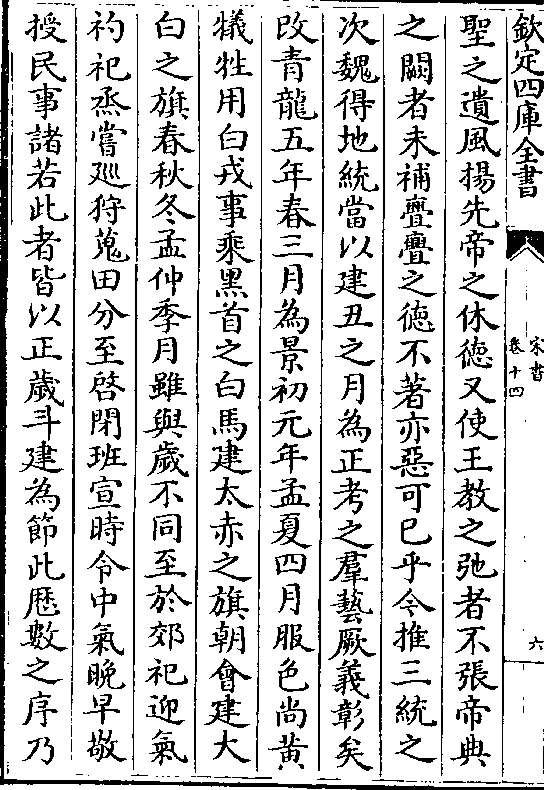 欽定四庫全書
宋書
卷十四
六
聖之遺風揚先帝之休徳又使王教之弛者不張帝典
之闕者未補亹亹之徳不著亦惡可已乎今推三統之
次魏得地統當以建丑之月為正考之羣藝厥義彰矣
改青龍五年春三月為景初元年孟夏四月服色尚黄
犧牲用白戎事乘黑首之白馬建太赤之旗朝會建大
白之旗春秋冬孟仲季月雖與歲不同至於郊祀迎氣
礿祀烝嘗廵狩蒐田分至啓閉班宣時令中氣晚早敬
授民事諸若此者皆以正歲斗建為節此厯數之序乃